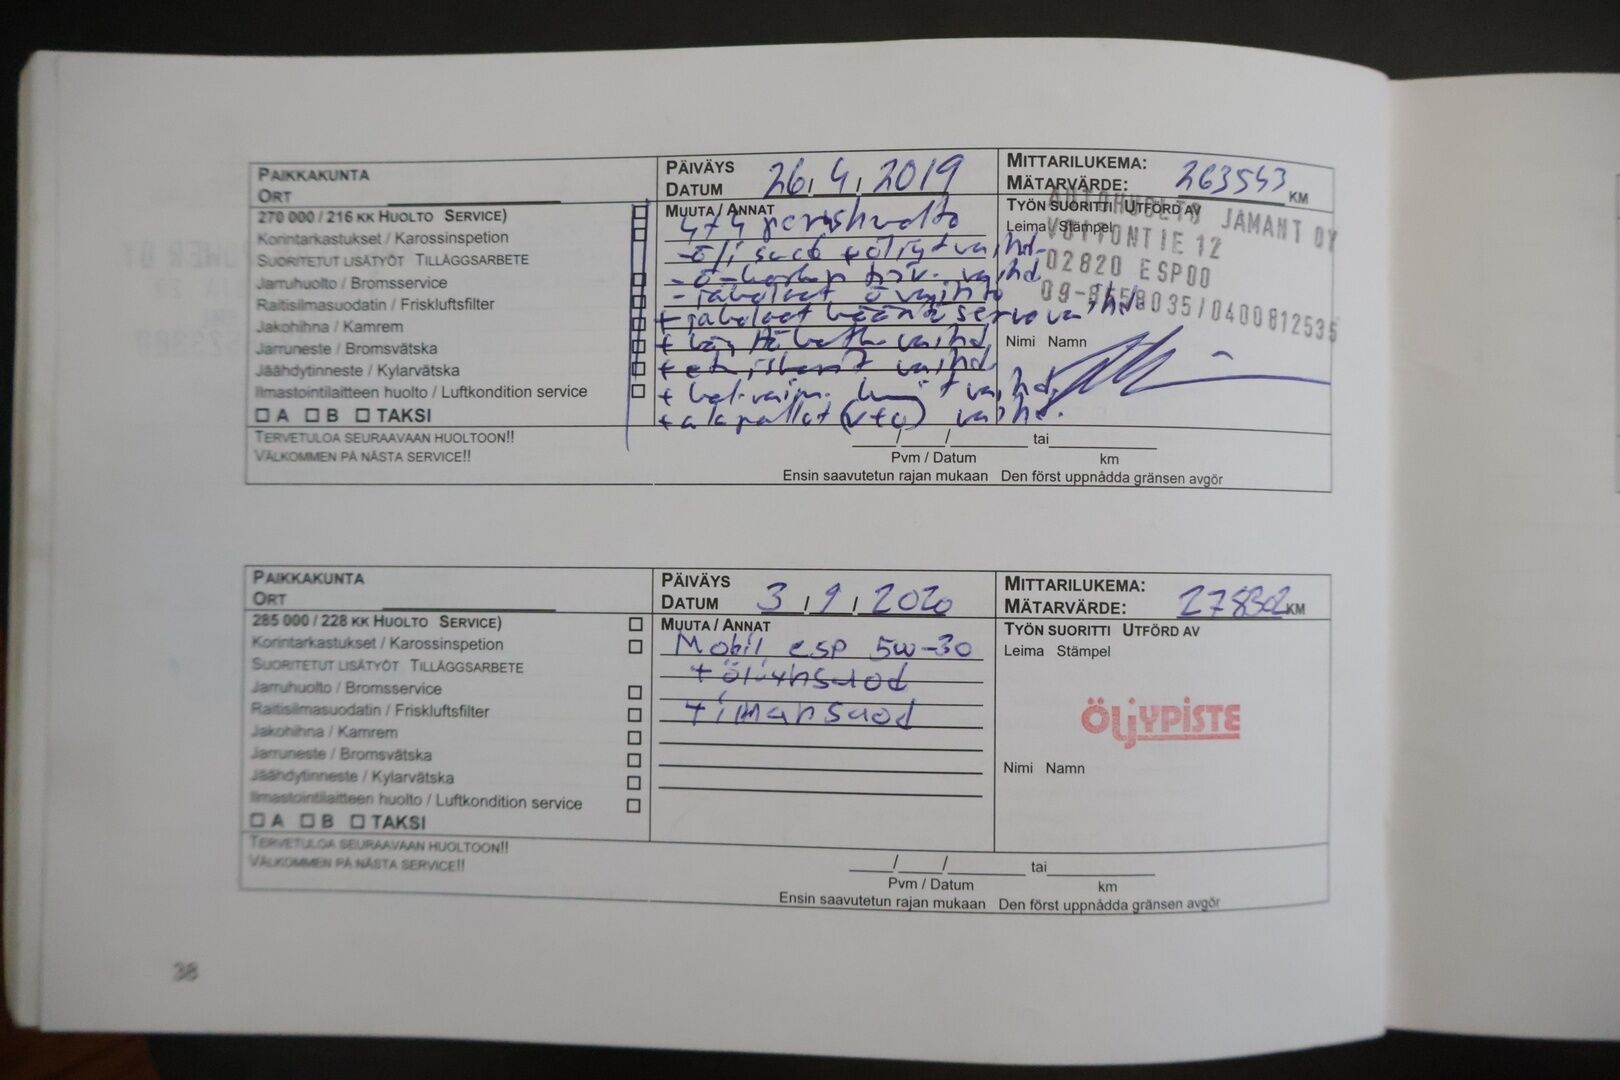 PAIKKAKUNTA
ORT
PÄIVÄYS
DATUM 26/4/2019
MITTARILUKEMA:
MÄTARVÄRDE: 263543 KM
270 000 / 216 KK HUOLTO SERVICE)
Korintarkastukset / Karossinspetion
SUORITETUT LISÄTYÖT TILLÄGGSARBETE
Jarruhuolto / Bromsservice
Raitisilmasuodatin / Friskluftsfilter
Jakohihna / Kamrem
Jarruneste / Bromsvätska
Jäähdytinneste / Kylarvätska
Ilmastointilaitteen huolto / Luftkondition service
A B TAKSI
MUUTA / ANNAT
4+4 perushuolto
-öljy +öljyt vaihd.
vaihd.
- takaluot
+ takaluot vaihd.
+ vaihd.
+ vaihd.
+ vaihd.
+ alapallot (v+o) vaihd.
TYÖN SUORITTI UTFÖRD AV
Leima Stämpel
AUTOHUOLTO JAMANT OY
02820 ESPOO
09-8558035/0400812535
Nimi Namn
TERVETULOA SEURAAVAAN HUOLTOON!!
VÄLKOMMEN PÅ NÄSTA SERVICE!!
/ / tai
Pvm / Datum km
Ensin saavutetun rajan mukaan Den först uppnådda gränsen avgör
PAIKKAKUNTA
ORT
PÄIVÄYS
DATUM 3/9/2020
MITTARILUKEMA:
MÄTARVÄRDE: 278302 KM
285 000 / 228 KK HUOLTO SERVICE)
Korintarkastukset / Karossinspetion
SUORITETUT LISÄTYÖT TILLÄGGSARBETE
Jarruhuolto / Bromsservice
Raitisilmasuodatin / Friskluftsfilter
Jakohihna / Kamrem
Jarruneste / Bromsvätska
Jäähdytinneste / Kylarvätska
Ilmastointilaitteen huolto / Luftkondition service
A B TAKSI
MUUTA / ANNAT
Mobil esp 5w-30
+ öljynsuod
+ ilmansuod
TYÖN SUORITTI UTFÖRD AV
Leima Stämpel
ÖLJYPISTE
Nimi Namn
TERVETULOA SEURAAVAAN HUOLTOON!!
VÄLKOMMEN PÅ NÄSTA SERVICE!!
/ / tai
Pvm / Datum km
Ensin saavutetun rajan mukaan Den först uppnådda gränsen avgör
38